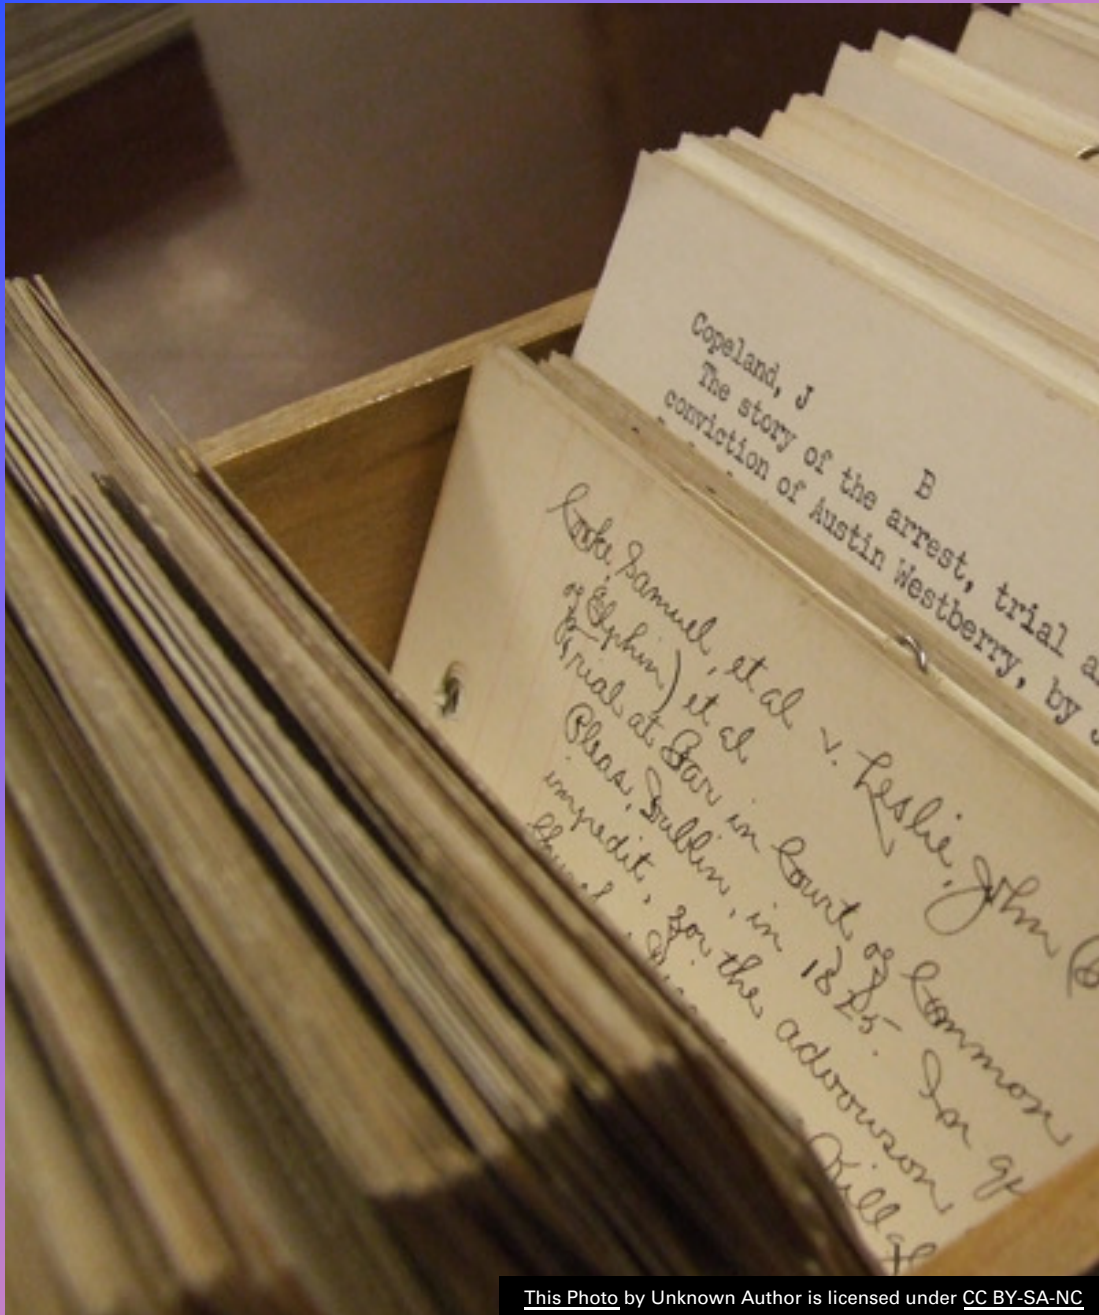 Copeland, J
B
The story of the arrest, trial a
conviction of Austin Westberry, by J
Cooke, Samuel, et al v. Leslie, John (B
of Elphin) et al
Trial at Bar in Court of Common
Pleas, Dublin, in 1825. In q
impedit, for the advowson
Church, Kill
This Photo by Unknown Author is licensed under CC BY-SA-NC